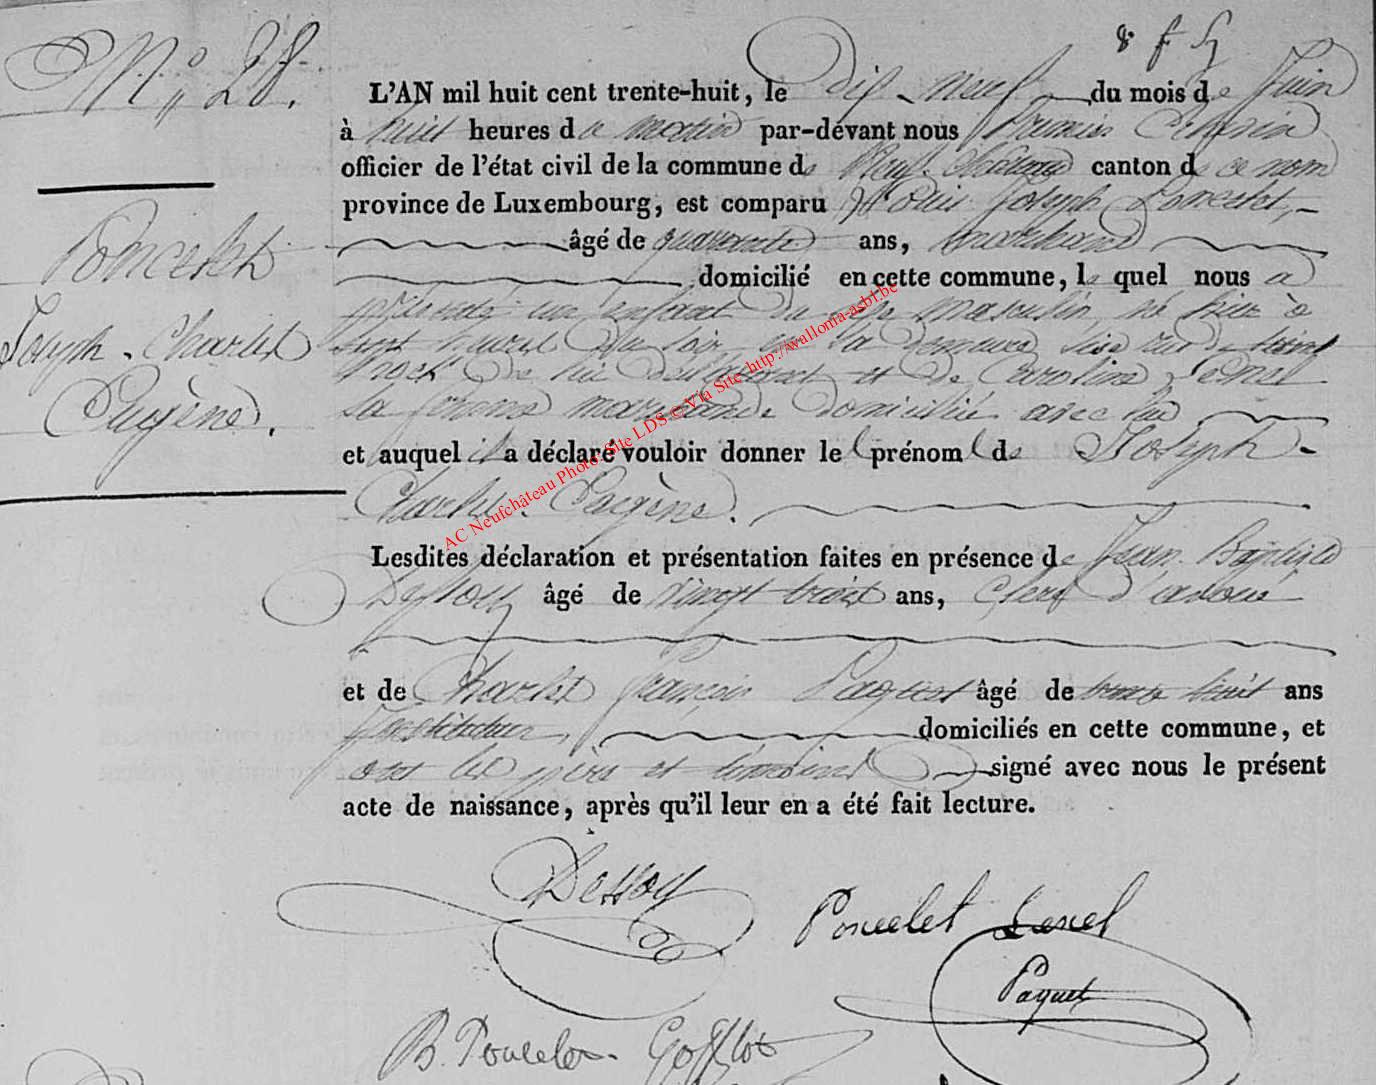 N.° 28.
L'AN mil huit cent trente-huit, le Dix-neuf du mois de Juin
à huit heures du matin par-devant nous
officier de l'état civil de la commune de Neufchâteau canton de ce nom
province de Luxembourg, est comparu Louis Joseph Poncelet,
âgé de quarante ans, marchand
domicilié en cette commune, lequel nous a
présenté un enfant du sexe masculin, né hier à
sept heures du soir, en sa demeure sise rue
de lui déclarant et de Caroline Lenel
sa femme marchande domiciliée avec lui
et auquel il a déclaré vouloir donner les prénoms de Joseph-
Charles-Eugène.
Poncelet
Joseph-Charles
Eugène.
Lesdites déclaration et présentation faites en présence de Jean-Baptiste
Dessoy âgé de vingt trois ans, clerc d'avoué
et de Charles François Paquet âgé de ans
instituteur, domiciliés en cette commune, et
ont les père et témoins signé avec nous le présent
acte de naissance, après qu'il leur en a été fait lecture.
Dessoy
Poncelet Lenel
Paquet
B. Poncelet
AC Neufchâteau Photo: Site LDS © Via Site http://wallonia-asbl.be